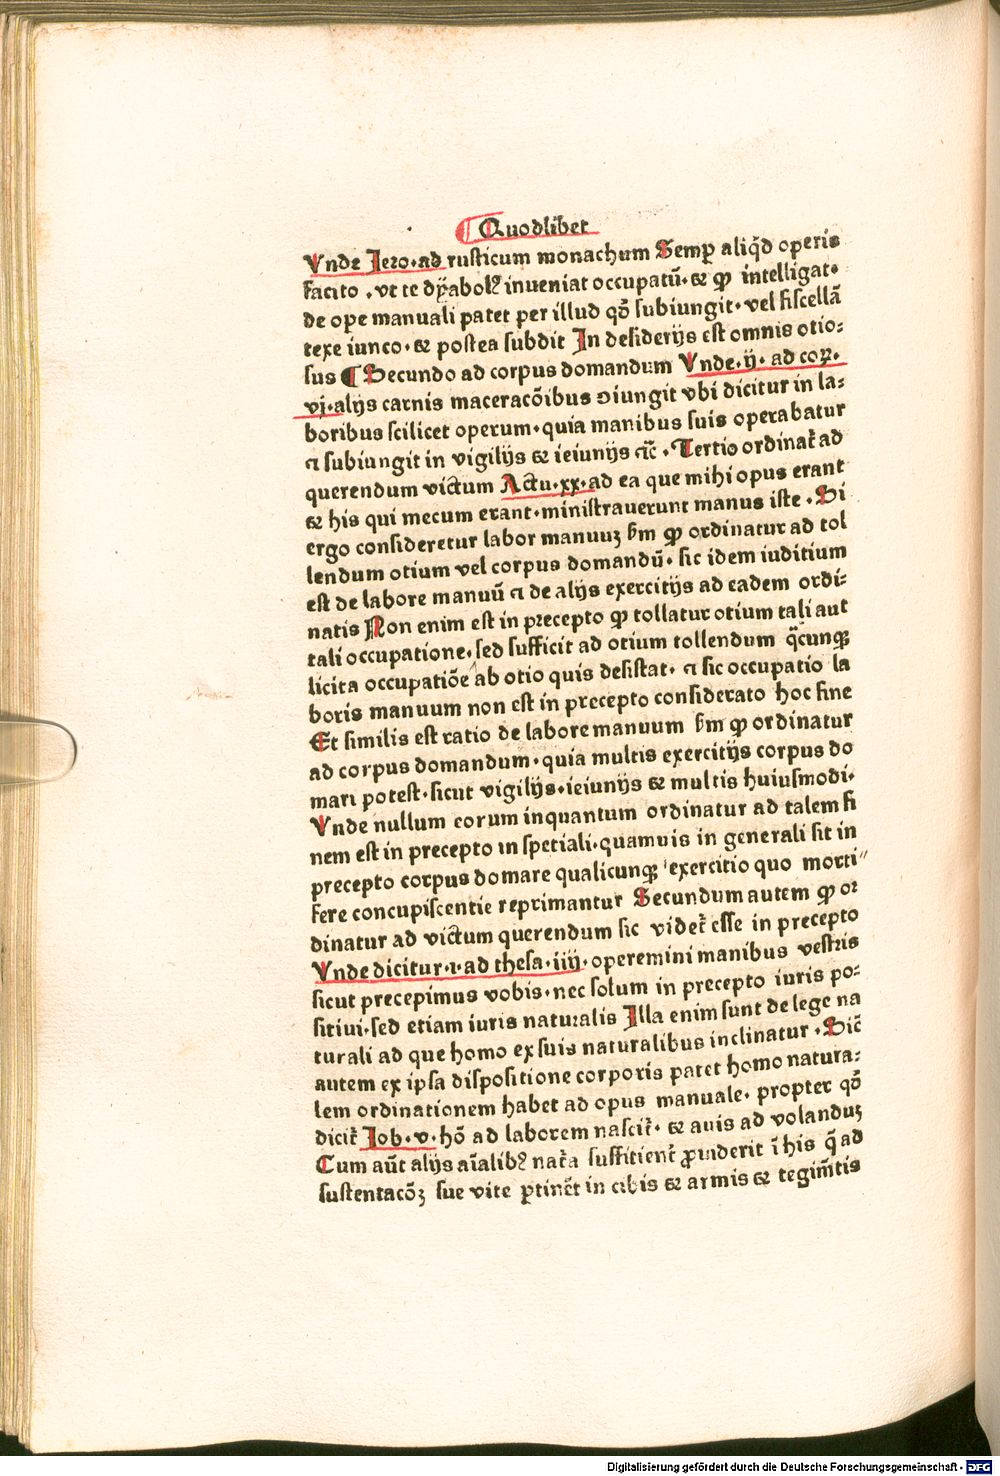 Quodlibet
Vnde Jero·ad rusticum monachum Semꝑ aliq̇d operis
facito . vt te dyabolꝰ inueniat occupatū· ⁊ ꝙ intelligat·
de ope manuali patet per illud qḋ subiungit· vel fiscellā
texe iunco· ⁊ postea subdit In desiderijs est omnis otio:
sus ¶ Secundo ad corpus domandum Vnde·ij· ad coꝝ·
vj·alijs carnis maceracōibus ꝯiungit vbi dicitur in la:
boribus scilicet operum·quia manibus suis operabatur
⁊ subiungit in vigilijs ⁊ ieiunijs ⁊c̄ · Tertio ordinat̄ ad
querendum victum Actu·xx·ad ea que mihi opus erant
⁊ his qui mecum erant·ministrauerunt manus iste · Si
ergo consideretur labor manuuꝫ ẜm ꝙ ordinatur ad tol
lendum otium vel corpus domandū· sic idem iuditium
est de labore manuū ⁊ de alijs exercitijs ad eadem ordi:
natis Non enim est in precepto ꝙ tollatur otium tali aut
tali occupatione· sed sufficit ad otium tollendum q̄cunqꝫ
licita occupatiōe ab otio quis desistat· ⁊ sic occupatio la
boris manuum non est in precepto considerato hoc fine
Et similis est ratio de labore manuum ẜm ꝙ ordinatur
ad corpus domandum·quia multis exercitijs corpus do
mari potest·sicut vigilijs·ieiunijs ⁊ multis huiusmodi·
Vnde nullum eorum inquantum ordinatur ad talem fi
nem est in precepto in spetiali·quamuis in generali sit in
precepto corpus domare qualicunqꝫ exercitio quo morti
fere concupiscentie reprimantur Secundum autem ꝙ or
dinatur ad victum querendum sic videt̄ esse in precepto
Vnde dicitur·1·ad thesa·iiij·operemini manibus vestris
sicut precepimus vobis·nec solum in precepto iuris po:
sitiui·sed etiam iuris naturalis Illa enim sunt de lege na
turali ad que homo ex suis naturalibus inclinatur ·Sic̄
autem ex ipsa dispositione corporis patet homo natura:
lem ordinationem habet ad opus manuale· propter qḋ
dicit̄ Job·v·hō ad laborem nascit̄· ⁊ auis ad volanduꝫ
Cum aūt alijs aīalibꝰ nat̄a suffitient̄ ꝓuiderit ī his q̄ ad
sustentacōꝫ sue vite ꝑtinēt in cibis ⁊ armis ⁊ tegim̄tis
Digitalisierung gefördert durch die Deutsche Forschungsgemeinschaft - DFG